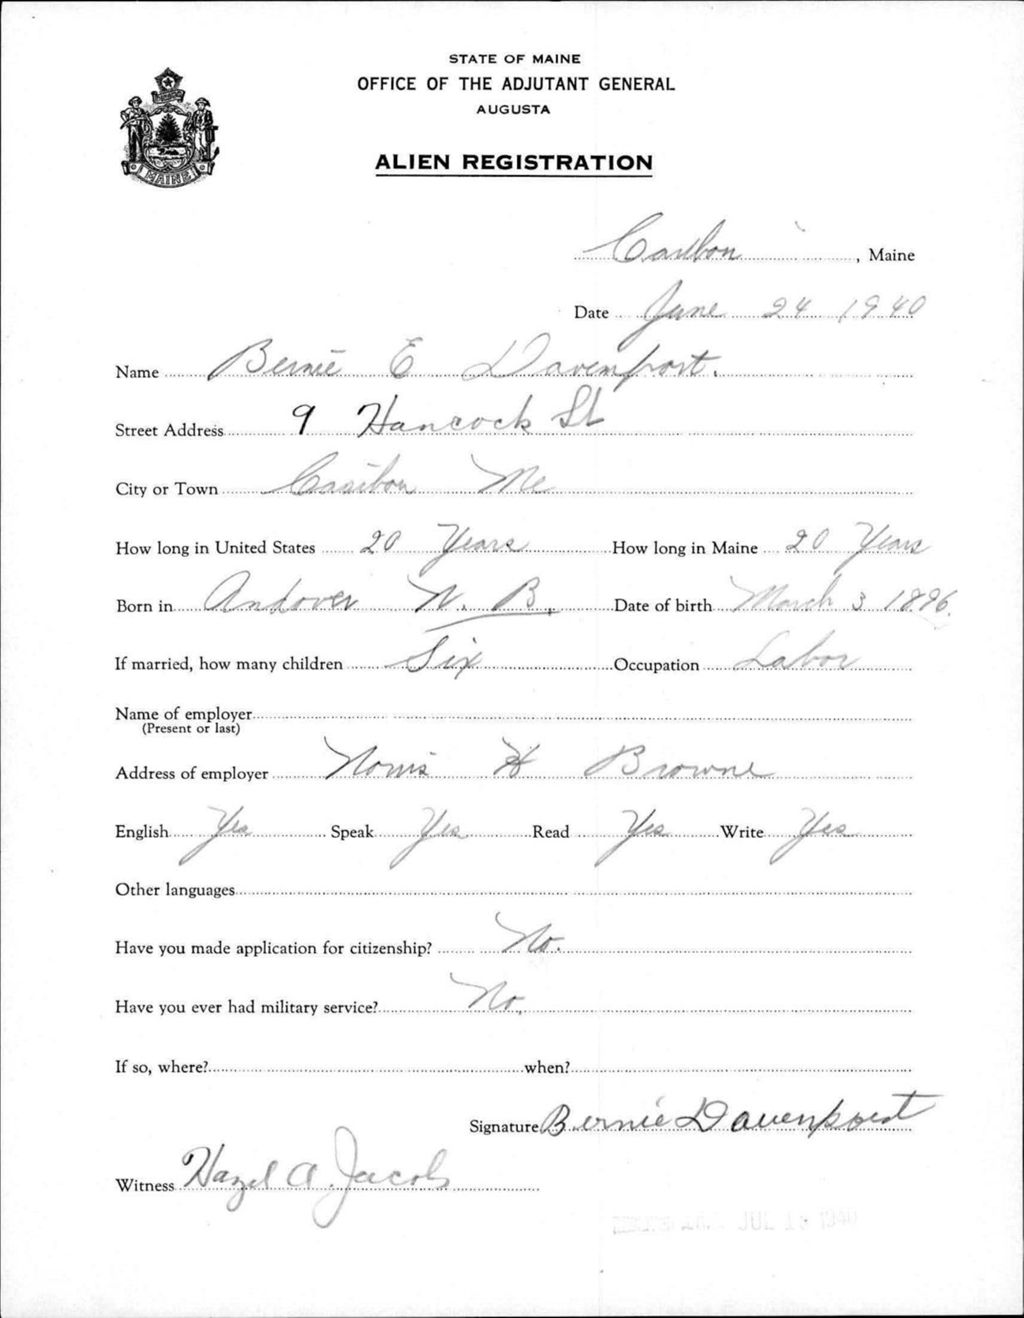 STATE OF MAINE
OFFICE OF THE ADJUTANT GENERAL
AUGUSTA
MAINE
ALIEN REGISTRATION
Caribou, Maine
Date June 24 1940
Name Bernie E Davenport.
Street Address 9 Hancock St
City or Town Caribou Me
How long in United States 20 Years How long in Maine 20 Years
Born in Andover N. B. Date of birth March 3 1896.
If married, how many children Six Occupation Labor
Name of employer
(Present or last)
Address of employer Norris H Browne
English Yes Speak Yes Read Yes Write Yes
Other languages
Have you made application for citizenship? No.
Have you ever had military service? No.
If so, where? when?
Signature Bernie Davenport
Witness Hazel A. Jacobs
JUL 1940